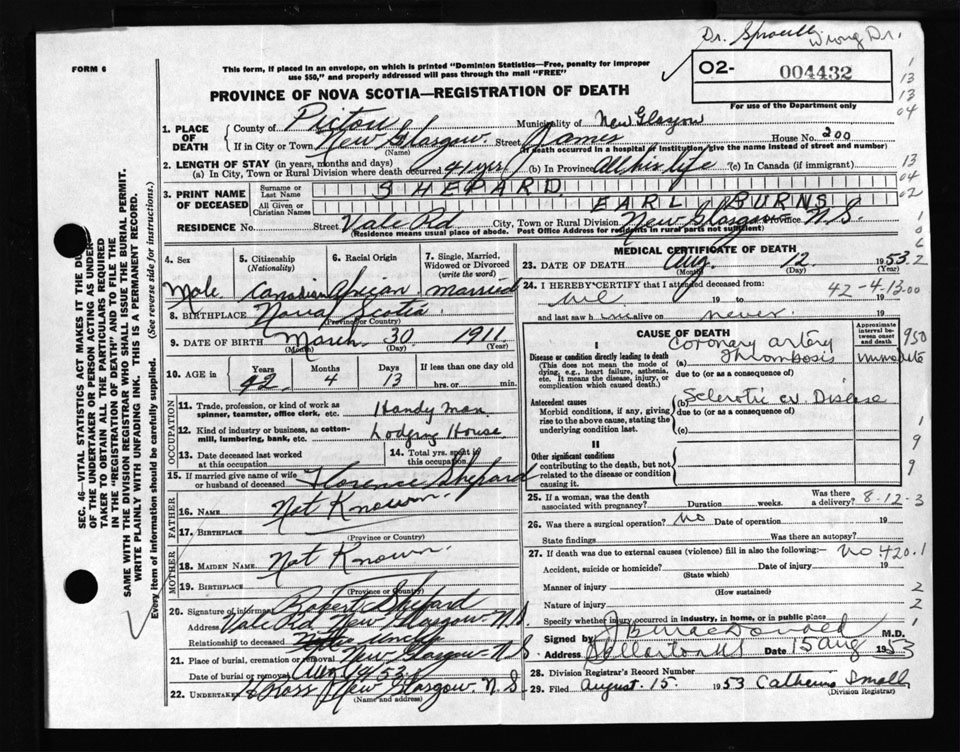 Dr. Sproull Wrong Dr.
FORM 6
This form, if placed in an envelope, on which is printed "Dominion Statistics—Free, penalty for improper
use $50," and properly addressed will pass through the mail "FREE"
O2- 004432
For use of the Department only
PROVINCE OF NOVA SCOTIA—REGISTRATION OF DEATH
1
13
13
04
1. PLACE OF DEATH
County of Pictou Municipality of New Glasgow
If in City or Town New Glasgow Street James House No. 200
(Name) (If death occurred in a hospital or institution give the name instead of street and number)
2. LENGTH OF STAY (in years, months and days)
(a) In City, Town or Rural Division where death occurred 41 yrs (b) In Province All his life (c) In Canada (if immigrant)
13
04
02
3. PRINT NAME OF DECEASED
Surname or Last Name SHEPARD
All Given or Christian Names EARL BURNS
RESIDENCE No. Street Vale Rd City, Town or Rural Division New Glasgow Province N.S.
(Residence means usual place of abode. Post Office Address for residents in rural parts not sufficient)
4. Sex
Male
5. Citizenship
(Nationality)
Canadian
6. Racial Origin
African
7. Single, Married,
Widowed or Divorced
(write the word)
married
8. BIRTHPLACE Nova Scotia
(Province or Country)
9. DATE OF BIRTH March 30 1911
(Month) (Day) (Year)
10. AGE in
Years Months Days If less than one day old
42 4 13 hrs. or min.
OCCUPATION
11. Trade, profession, or kind of work as
spinner, teamster, office clerk, etc. Handy Man
12. Kind of industry or business, as cotton-
mill, lumbering, bank, etc. Lodging House
13. Date deceased last worked
at this occupation
14. Total yrs. spent
in this occupation
15. If married give name of wife
or husband of deceased Florence Shepard
FATHER
16. Name Not Known
17. Birthplace
(Province or Country)
MOTHER
18. Maiden Name Not Known
19. Birthplace
(Province or Country)
20. Signature of informant Robert Shepard
Address Vale Rd New Glasgow N.S.
Relationship to deceased Uncle
21. Place of burial, cremation or removal New Glasgow N.S.
Aug 1953
22. Undertaker New Glasgow N.S.
(Name and address)
MEDICAL CERTIFICATE OF DEATH
23. DATE OF DEATH Aug. 12 1953
(Month) (Day) (Year)
24. I HEREBY CERTIFY that I attended deceased from:
19 to 19
and last saw h im alive on never 19
42-4-13
CAUSE OF DEATH
Approximate
interval be-
tween onset
and death
I
Disease or condition directly leading to death
(This does not mean the mode of
dying, e.g., heart failure, asthenia,
etc. It means the disease, injury, or
complication which caused death.)
(a) Coronary artery
Thrombosis
Immediate
due to (or as a consequence of)
Antecedent causes
Morbid conditions, if any, giving
rise to the above cause, stating the
underlying condition last.
(b) Sclerotic cv. Disease
due to (or as a consequence of)
(c)
II
Other significant conditions
contributing to the death, but not
related to the disease or condition
causing it.
1
9
9
25. If a woman, was the death
associated with pregnancy? Duration weeks. Was there
a delivery?
8-12-3
26. Was there a surgical operation? No Date of operation 19
State findings Was there an autopsy?
27. If death was due to external causes (violence) fill in also the following:— No 420.1
Accident, suicide or homicide? Date of injury 19
(State which)
Manner of injury 2
(How sustained)
Nature of injury 2
Specify whether injury occurred in industry, in home, or in public place 1
Signed by J B MacDonald M.D.
Address Stellarton NS Date 15 Aug 1953
28. Division Registrar's Record Number
29. Filed August 15. 1953 Catherine Small
(Division Registrar)
SEC. 46—VITAL STATISTICS ACT MAKES IT THE DUTY
OF THE UNDERTAKER OR PERSON ACTING AS UNDER-
TAKER TO OBTAIN ALL THE PARTICULARS REQUIRED
IN THE "REGISTRATION OF DEATH" AND TO FILE THE
SAME WITH THE DIVISION REGISTRAR WHO SHALL ISSUE THE BURIAL PERMIT.
WRITE PLAINLY WITH UNFADING INK. THIS IS A PERMANENT RECORD.
Every item of information should be carefully supplied. (See reverse side for instructions.)